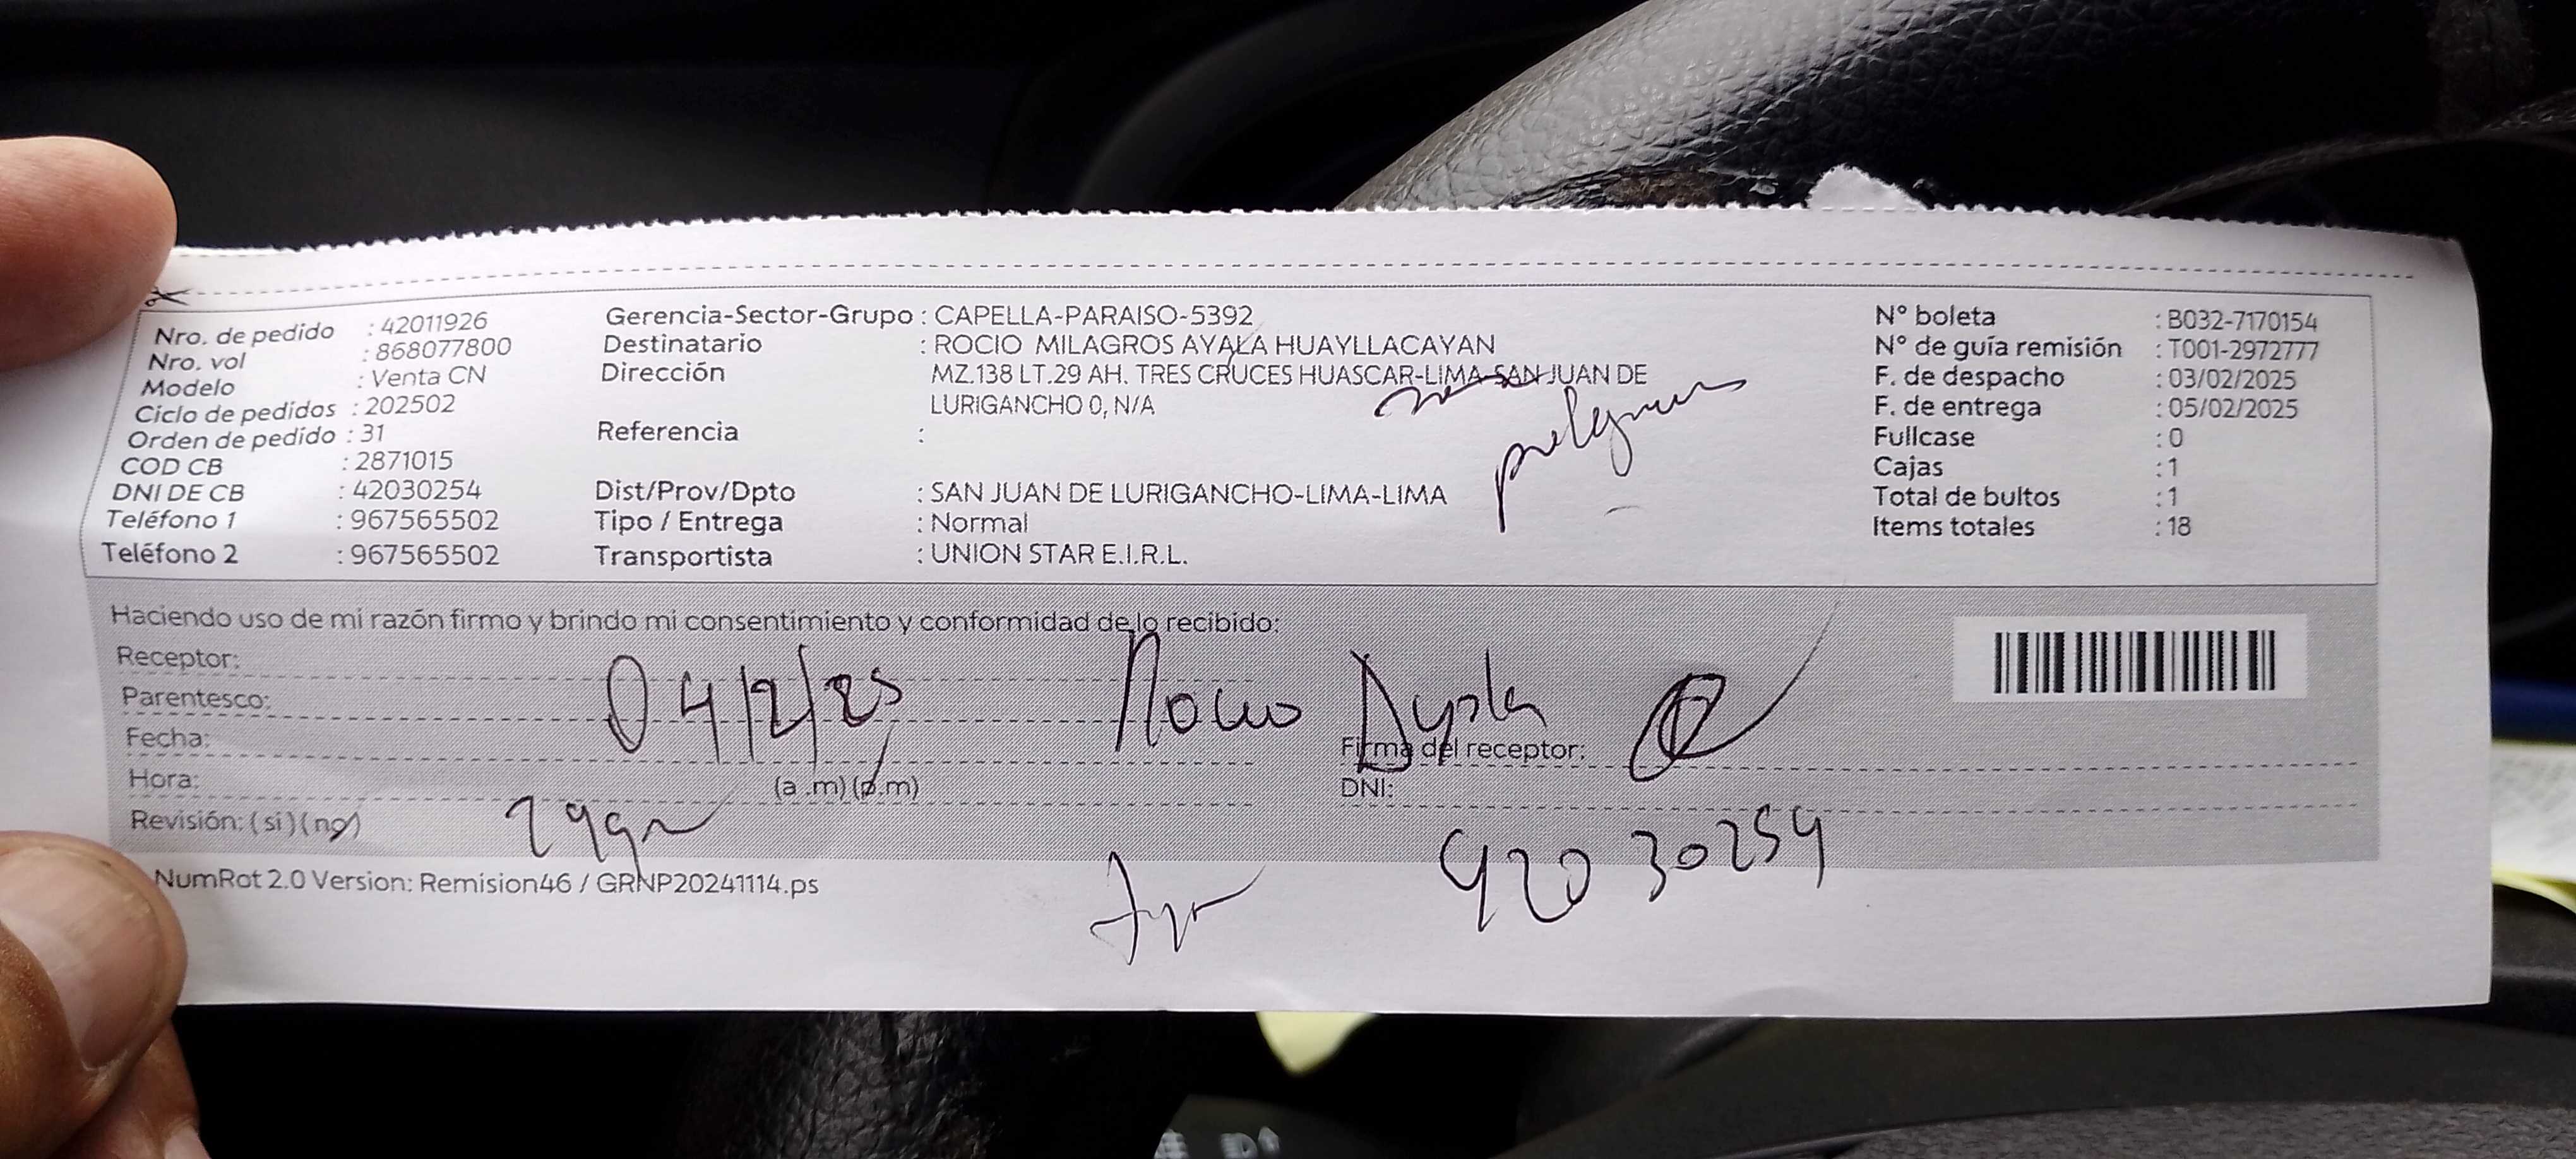 Nro. de pedido : 42011926
Nro. vol : 868077800
Modelo : Venta CN
Ciclo de pedidos : 202502
Orden de pedido : 31
COD CB : 2871015
DNI DE CB : 42030254
Teléfono 1 : 967565502
Teléfono 2 : 967565502
Gerencia-Sector-Grupo : CAPELLA-PARAISO-5392
Destinatario : ROCIO MILAGROS AYALA HUAYLLACAYAN
Dirección MZ.138 LT.29 AH. TRES CRUCES HUASCAR-LIMA-SAN JUAN DE
LURIGANCHO 0, N/A
Referencia :
Dist/Prov/Dpto : SAN JUAN DE LURIGANCHO-LIMA-LIMA
Tipo / Entrega : Normal
Transportista : UNION STAR E.I.R.L.
N° boleta : B032-7170154
N° de guía remisión : T001-2972777
F. de despacho : 03/02/2025
F. de entrega : 05/02/2025
Fullcase : 0
Cajas : 1
Total de bultos : 1
Items totales : 18
Haciendo uso de mi razón firmo y brindo mi consentimiento y conformidad de lo recibido:
Receptor:
Parentesco: 04/2/25 Rocio Ayala
Fecha: Firma del receptor:
Hora: (a .m) (p.m) DNI:
Revisión: ( si ) ( no )
42030254
NumRot 2.0 Version: Remision46 / GRNP20241114.ps